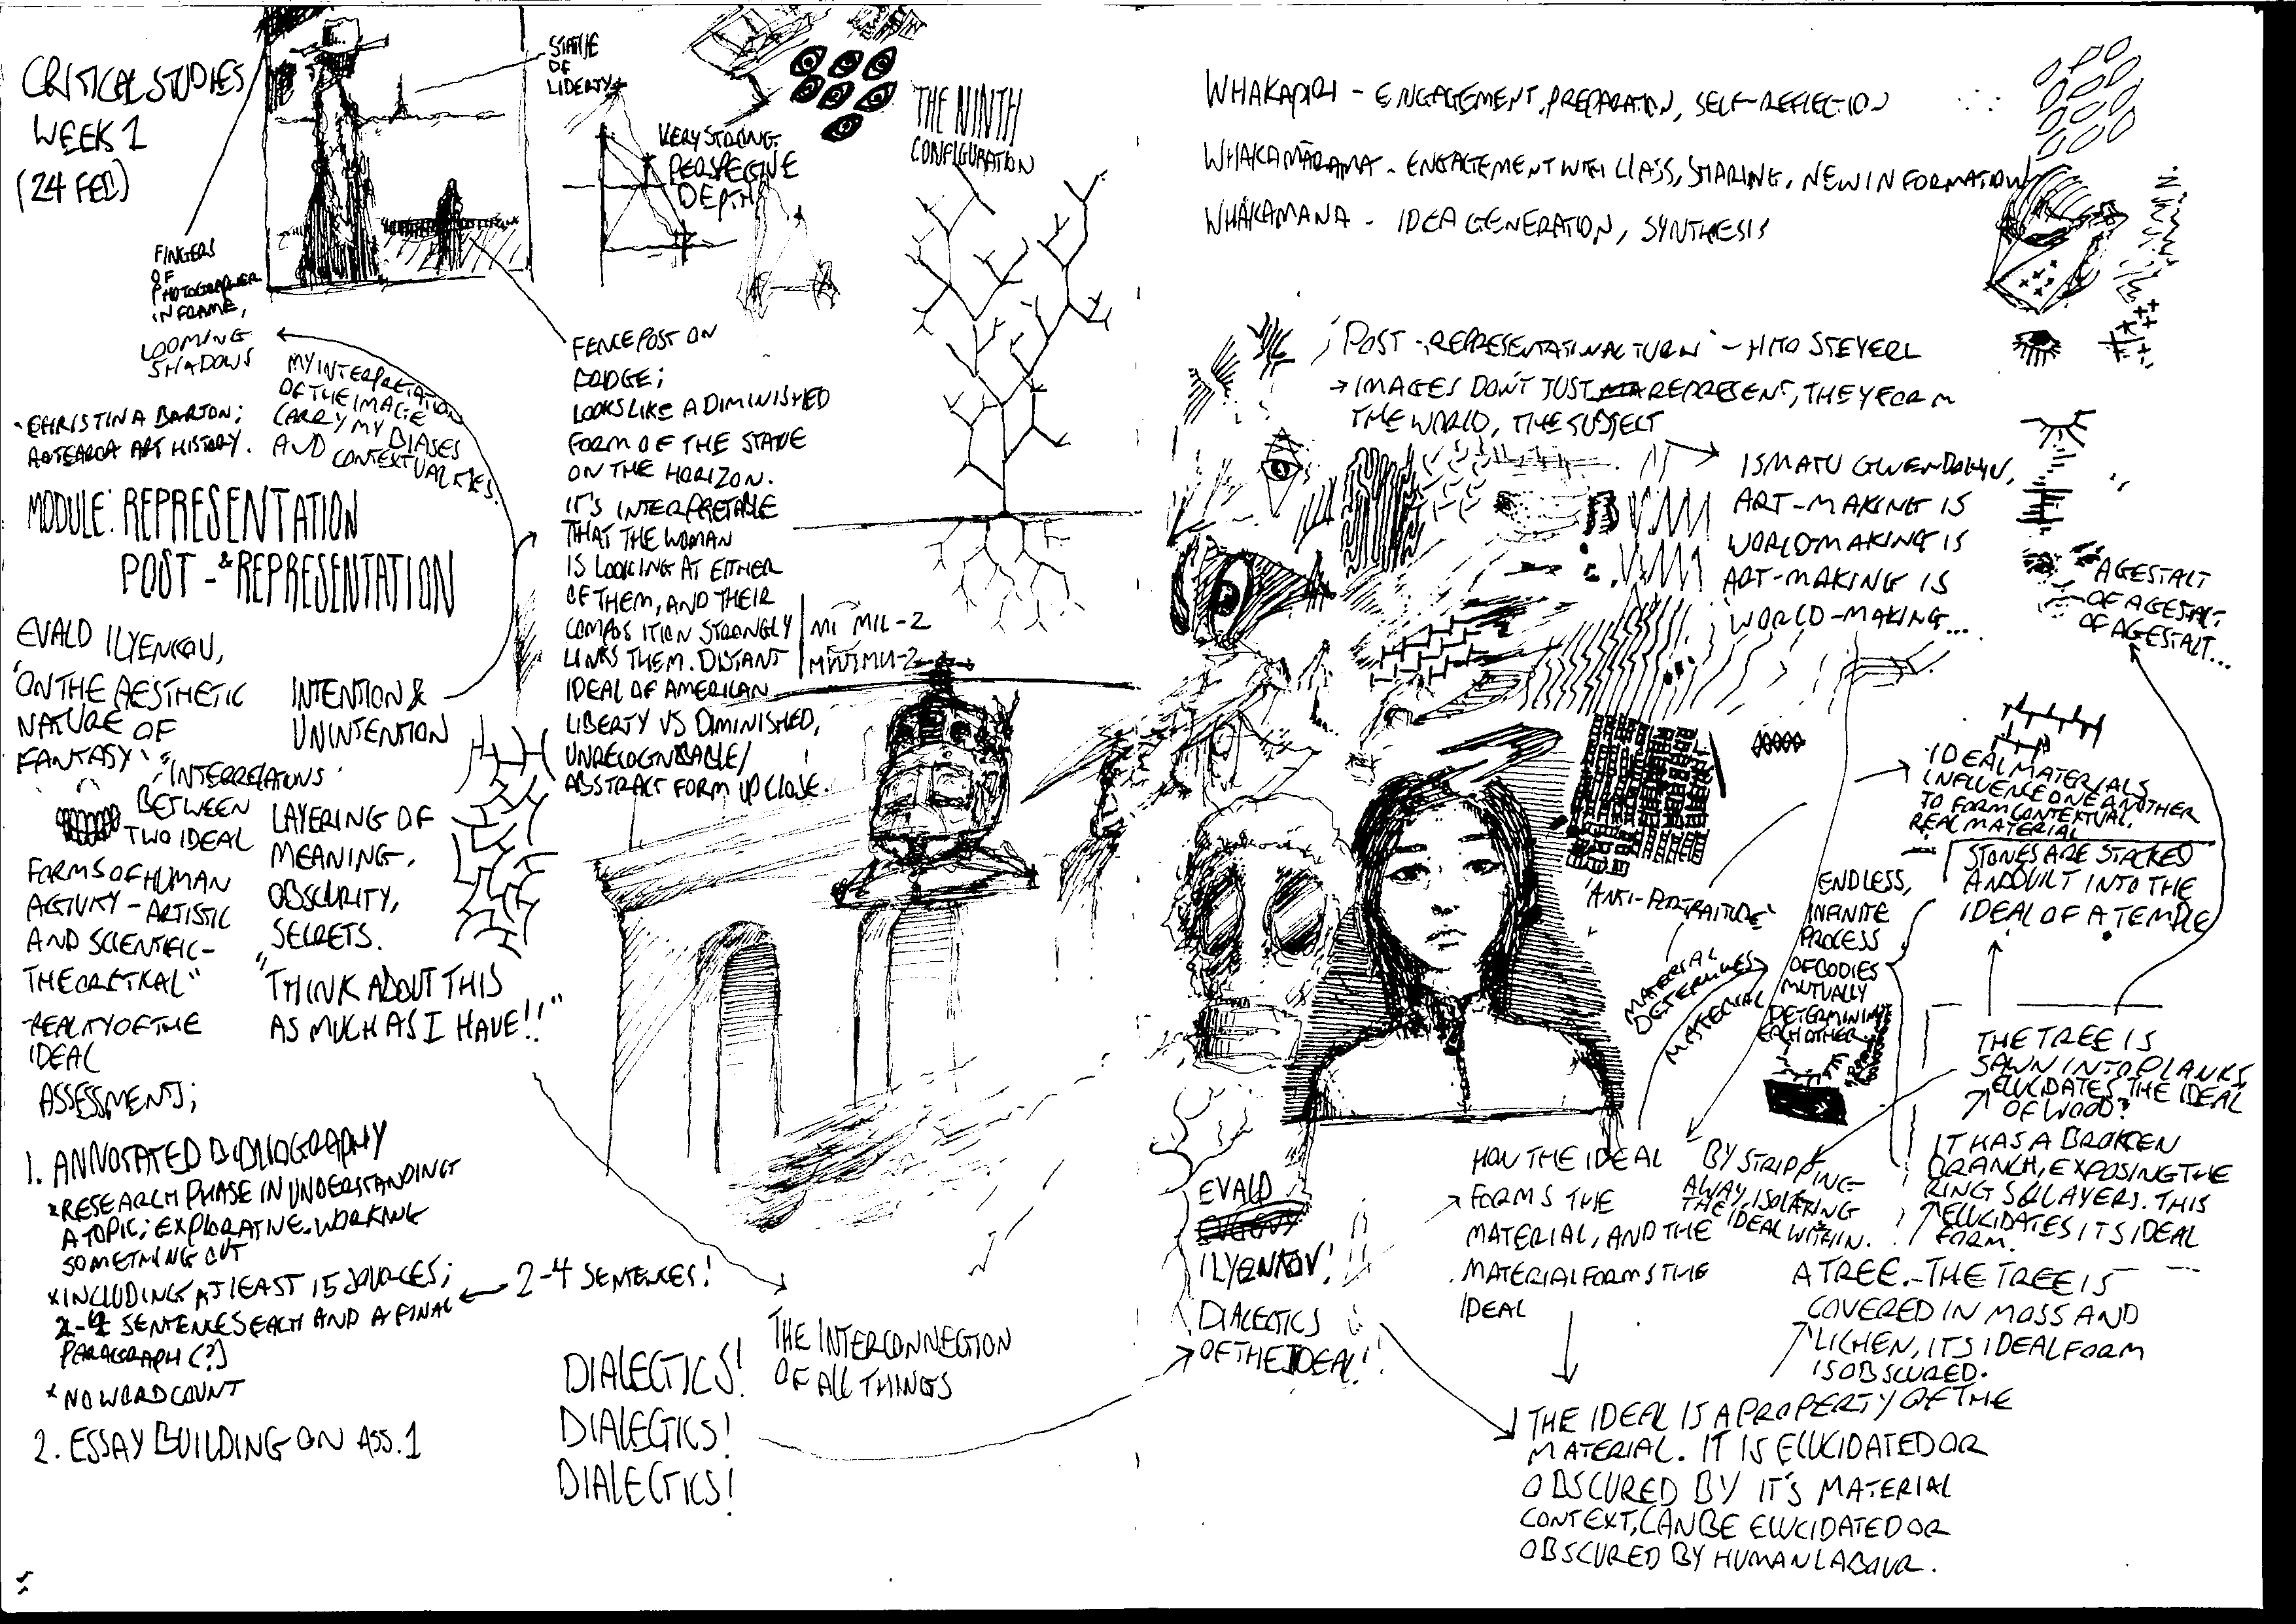 CRITICAL STUDIES
WEEK 1
(24 FEB)
STATUE
OF
LIBERTY
VERY STRONG
PERSPECTIVE
DEPTH
THE NINTH
CONFIGURATION
FINGERS
OF
PHOTOGRAPHER
IN FRAME,
LOOMING
SHADOWS
MY INTERPRETATION
OF THE IMAGE
CARRY MY BIASES
AND CONTEXTUALITIES.
- CHRISTINA BARTON;
AOTEAROA ART HISTORY.
MODULE: REPRESENTATION
POST-&REPRESENTATION
EVALD ILYENKOV,
'ON THE AESTHETIC
NATURE OF
FANTASY'
"INTERRELATIONS
BETWEEN
TWO IDEAL
FORMS OF HUMAN
ACTIVITY - ARTISTIC
AND SCIENTIFIC-
THEORETICAL"
-REALITY OF THE
IDEAL
INTENTION &
UNINTENTION
LAYERING OF
MEANING,
OBSCURITY,
SECRETS.
"THINK ABOUT THIS
AS MUCH AS I HAVE!!"
FENCEPOST ON
BRIDGE;
LOOKS LIKE A DIMINISHED
FORM OF THE STATUE
ON THE HORIZON.
IT'S INTERPRETABLE
THAT THE WOMAN
IS LOOKING AT EITHER
OF THEM, AND THEIR
COMPOSITION STRONGLY
LINKS THEM. DISTANT
IDEAL OF AMERICAN
LIBERTY VS DIMINISHED,
UNRECOGNISABLE/
ABSTRACT FORM UP CLOSE.
MI MIL-2
ASSESSMENTS;
1. ANNOTATED BIBLIOGRAPHY
*RESEARCH PHASE IN UNDERSTANDING
A TOPIC; EXPLORATIVE, WORKING
SOMETHING OUT
*INCLUDING AT LEAST 15 SOURCES;
2-4 SENTENCES EACH AND A FINAL
PARAGRAPH (?)
* NO WORD COUNT
2-4 SENTENCES!
2. ESSAY BUILDING ON ASS. 1
DIALECTICS!
DIALECTICS!
DIALECTICS!
THE INTERCONNECTION
OF ALL THINGS
WHAKAPIRI - ENGAGEMENT, PREPARATION, SELF-REFLECTION
WHAKAMĀRAMA - ENGAGEMENT WITH CLASS, SHARING, NEW INFORMATION
WHAKAMANA - IDEA GENERATION, SYNTHESIS
'POST-REPRESENTATINAL TURN' - HITO STEYERL
→ IMAGES DON'T JUST REPRESENT, THEY FORM
THE WORLD, THE SUBJECT
ISMATU GWENDOLYN,
ART-MAKING IS
WORLDMAKING IS
ART-MAKING IS
WORLD-MAKING...
A GESTALT
OF A GESTALT
OF A GESTALT...
IDEAL MATERIALS
INFLUENCE ONE ANOTHER
TO FORM CONTEXTUAL,
REAL MATERIAL
STONES ARE STACKED
AND BUILT INTO THE
IDEAL OF A TEMPLE
'ANTI-PORTRAITURE'
MATERIAL
DETERMINES
MATERIAL
ENDLESS,
INFINITE
PROCESS
OF BODIES
MUTUALLY
DETERMINING
EACH OTHER.
THE TREE IS
SAWN INTO PLANKS,
ELUCIDATES THE IDEAL
OF WOOD?
IT HAS A BROKEN
BRANCH, EXPOSING THE
RINGS & LAYERS. THIS
ELUCIDATES ITS IDEAL
FORM.
A TREE. - THE TREE IS
COVERED IN MOSS AND
LICHEN, ITS IDEAL FORM
IS OBSCURED.
BY STRIPPING
AWAY, ISOLATING
THE IDEAL WITHIN.
HOW THE IDEAL
FORMS THE
MATERIAL, AND THE
MATERIAL FORMS THE
IDEAL
EVALD
ILYENKOV!
DIALECTICS
OF THE IDEAL!
THE IDEAL IS A PROPERTY OF THE
MATERIAL. IT IS ELUCIDATED OR
OBSCURED BY IT'S MATERIAL
CONTEXT, CAN BE ELUCIDATED OR
OBSCURED BY HUMAN LABOUR.